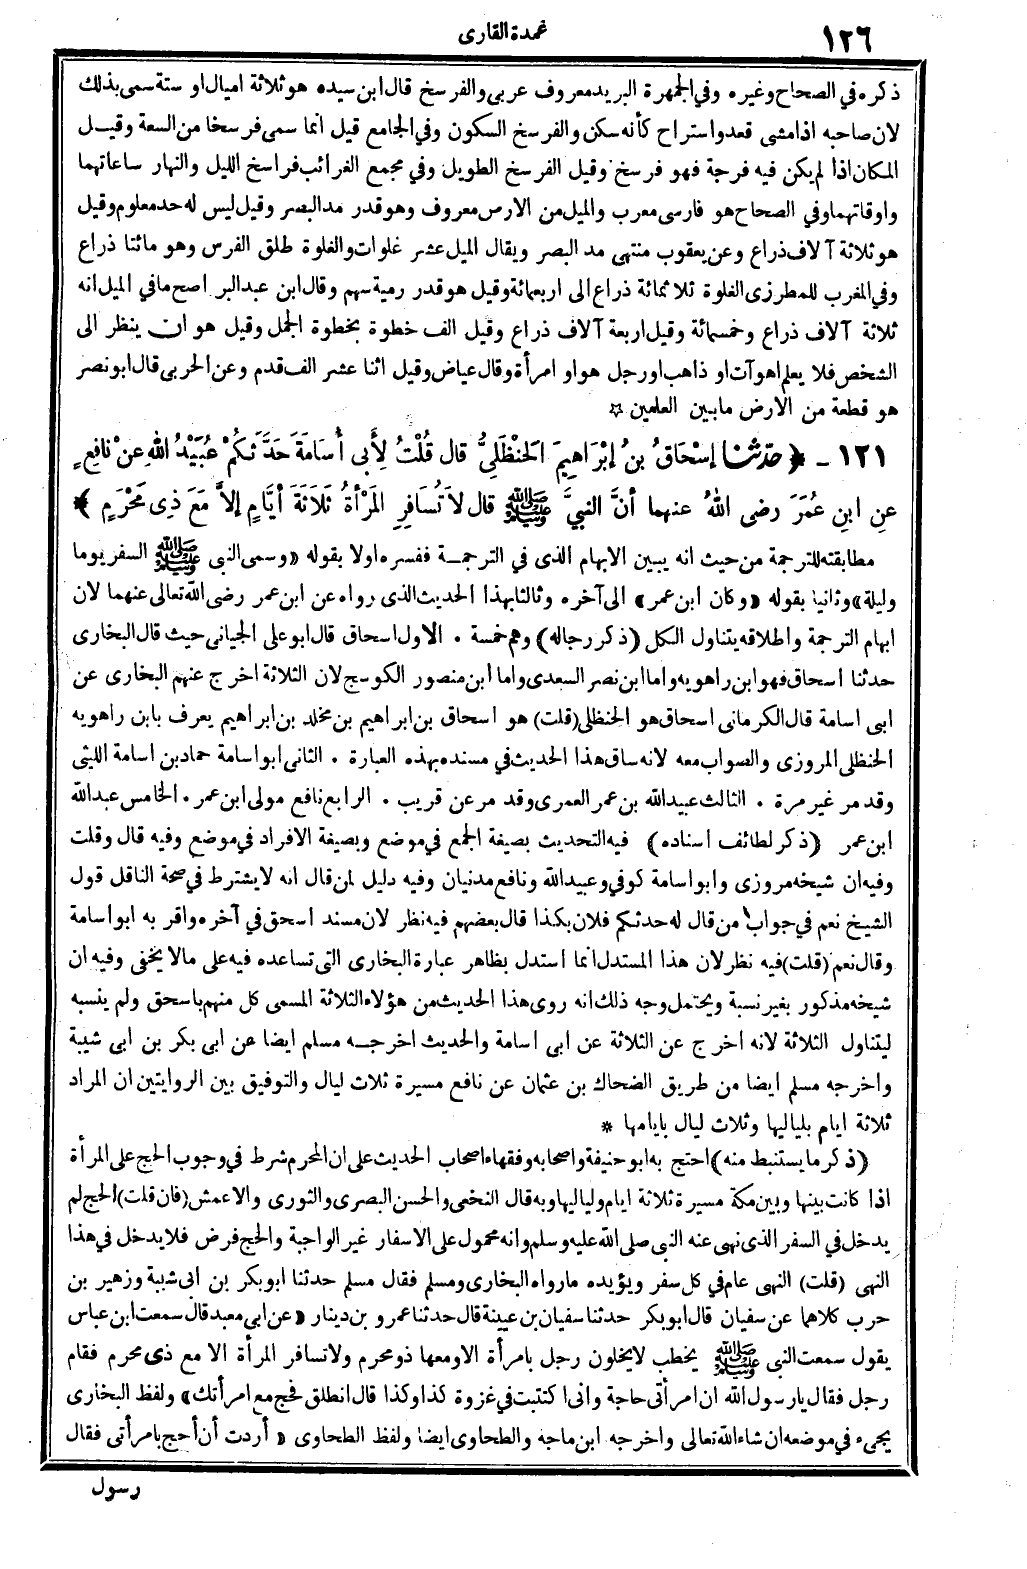 ١٢٦
عمدة القارى
ذكره في الصحاح وغيره وفي الجمهرة البريد معروف عربى والفرسخ قال ابن سيده هو ثلاثة اميال او ستة سمى بذلك
لان صاحبه اذا مشى قعد واستراح كأنه سكن والفرسخ السكون وفي الجامع قيل انما سمى فرسخا من السعة وقيل
المكان اذا لم يكن فيه فرجة فهو فرسخ وقيل الفرسخ الطويل وفي مجمع الغرائب فراسخ الليل والنهار ساعاتهما
واوقاتهما وفي الصحاح هو فارسى معرب والميل من الارض معروف وهو قدر مد البصر وقيل ليس له حد معلوم وقيل
هو ثلاثة آلاف ذراع وعن يعقوب منتهى مد البصر ويقال الميل عشر غلوات والغلوة طلق الفرس وهو مائتا ذراع
وفي المغرب للمطرزى الغلوة ثلاثمائة ذراع الى اربعمائة وقيل هو قدر رمية سهم وقال ابن عبد البر اصح مافي الميل انه
ثلاثة آلاف ذراع وخمسمائة وقيل اربعة آلاف ذراع وقيل الف خطوة بخطوة الجمل وقيل هو ان ينظر الى
الشخص فلا يعلم اهو آت او ذاهب او رجل هو او امرأة وقال عياض وقيل اثنا عشر الف قدم وعن الحربى قال ابو نصر
هو قطعة من الارض مابين العلمين ☆
١٢١ - ﴿ حَدَّثَنَا إِسْحَاقُ بنُ إِبْرَاهِيمَ الحَنْظَلِيُّ قال قُلْتُ لِأَبى أُسَامَةَ حَدَّثَكُمْ عُبَيْدُ اللهِ عنْ نافِعٍ
عنِ ابنِ عُمَرَ رضى اللهُ عنهما أنَّ النبيَّ ﷺ قال لاَ تُسَافِرِ المَرْأةُ ثَلاَثَةَ أيَّامٍ إلاَّ مَعَ ذِى مَحْرَمٍ ﴾
مطابقته للترجمة من حيث انه يبين الابهام الذى في الترجمة ففسره اولا بقوله «وسمى النبى ﷺ السفر يوما
وليلة» وثانيا بقوله «وكان ابن عمر» الى آخره وثالثا بهذا الحديث الذى رواه عن ابن عمر رضى الله تعالى عنهما لان
ابهام الترجمة واطلاقه يتناول الكل (ذكر رجاله) وهم خمسة . الاول اسحاق قال ابو على الجيانى حيث قال البخارى
حدثنا اسحاق فهو ابن راهويه واما ابن نصر السعدى واما ابن منصور الكوسج لان الثلاثة اخرج عنهم البخارى عن
ابى اسامة قال الكرمانى اسحاق هو الحنظلى (قلت) هو اسحاق بن ابراهيم بن مخلد بن ابراهيم يعرف بابن راهويه
الحنظلى المروزى والصواب معه لانه ساق هذا الحديث في مسنده بهذه العبارة . الثانى ابو اسامة حماد بن اسامة الليثى
وقد مر غير مرة . الثالث عبيد الله بن عمر العمرى وقد مر عن قريب . الرابع نافع مولى ابن عمر . الخامس عبد الله
ابن عمر (ذكر لطائف اسناده) فيه التحديث بصيغة الجمع في موضع وبصيغة الافراد في موضع وفيه قال وقلت
وفيه ان شيخه مروزى وابو اسامة كوفي وعبيد الله ونافع مدنيان وفيه دليل لمن قال انه لا يشترط في صحة الناقل قول
الشيخ نعم في جواب من قال له حدثكم فلان بكذا قال بعضهم فيه نظر لان مسند اسحق في آخره واقر به ابو اسامة
وقال نعم (قلت) فيه نظر لان هذا المستدل انما استدل بظاهر عبارة البخارى التى تساعده فيه على مالا يخفى وفيه ان
شيخه مذكور بغير نسبة ويحتمل وجه ذلك انه روى هذا الحديث من هؤلاء الثلاثة المسمى كل منهم باسحق ولم ينسبه
ليتناول الثلاثة لانه اخرج عن الثلاثة عن ابى اسامة والحديث اخرجه مسلم ايضا عن ابى بكر بن ابى شيبة
واخرجه مسلم ايضا من طريق الضحاك بن عثمان عن نافع مسيرة ثلاث ليال والتوفيق بين الروايتين ان المراد
ثلاثة ايام بلياليها وثلاث ليال بايامها *
(ذكر ما يستنبط منه) احتج به ابو حنيفة واصحابه وفقهاء اصحاب الحديث على ان المحرم شرط في وجوب الحج على المرأة
اذا كانت بينها وبين مكة مسيرة ثلاثة ايام ولياليها وبه قال النخعى والحسن البصرى والثورى والاعمش (فان قلت) الحج لم
يدخل في السفر الذى نهى عنه النبى صلى الله عليه وسلم وانه محمول على الاسفار غير الواجبة والحج فرض فلا يدخل في هذا
النهى (قلت) النهى عام في كل سفر ويؤيده ما رواه البخارى ومسلم فقال مسلم حدثنا ابو بكر بن ابى شيبة وزهير بن
حرب كلاهما عن سفيان قال ابو بكر حدثنا سفيان بن عيينة قال حدثنا عمرو بن دينار «عن ابى معبد قال سمعت ابن عباس
يقول سمعت النبى ﷺ يخطب لا يخلون رجل بامرأة الا ومعها ذو محرم ولا تسافر المرأة الا مع ذى محرم فقام
رجل فقال يارسول الله ان امرأتى حاجة وانى اكتتبت في غزوة كذا وكذا قال انطلق فحج مع امرأتك» ولفظ البخارى
يجىء في موضعه ان شاء الله تعالى واخرجه ابن ماجه والطحاوى ايضا ولفظ الطحاوى «أردت أن أحج بامرأتى فقال
رسول